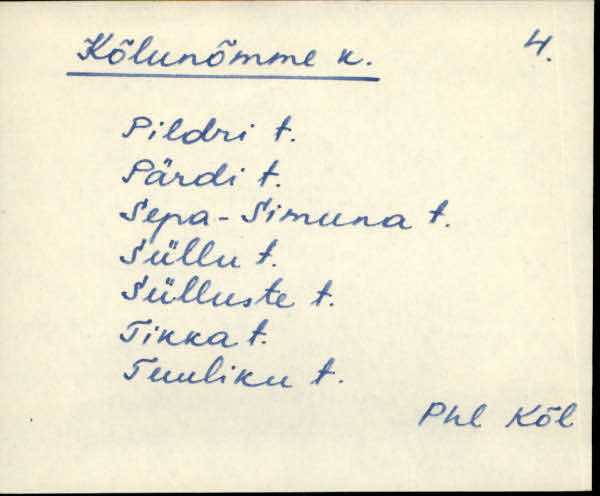 Kõlunõmme k. 4.
Pildri t.
Pärdi t.
Sepa-Simuna t.
Süllu t.
Sülluste t.
Tikka t.
Tuuliku t.
Phl Kõl